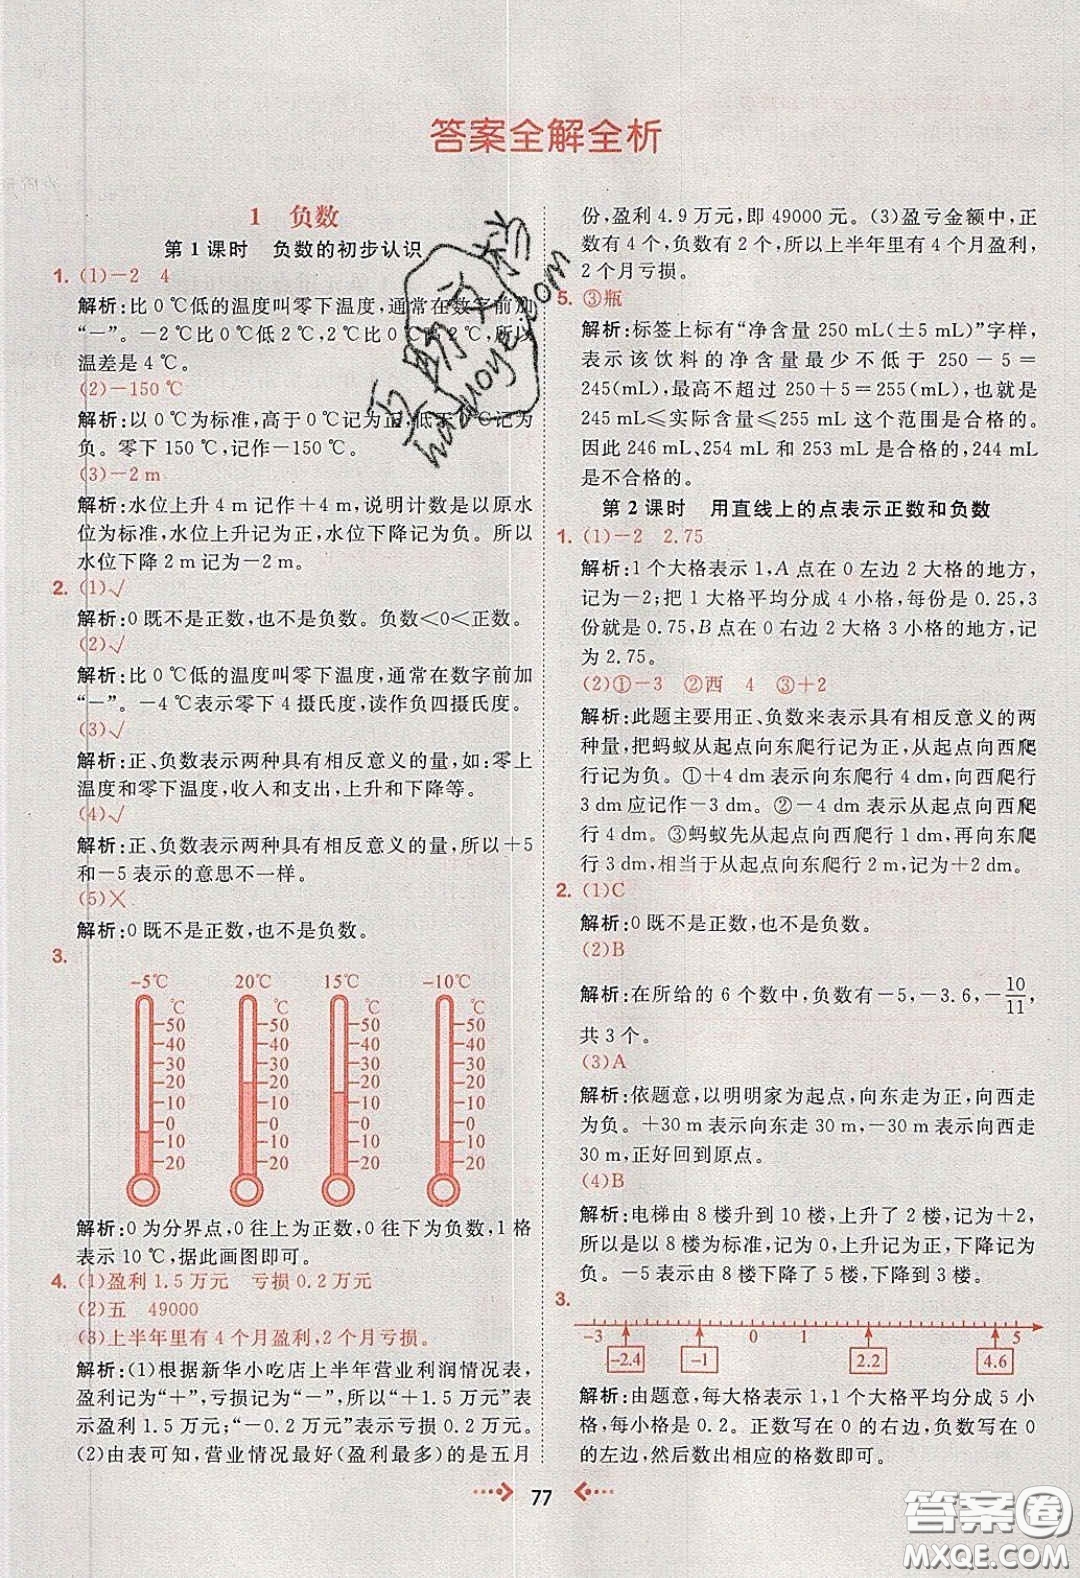 答案全解全析
1 负数
第1课时 负数的初步认识
1. (1)－2 4
解析:比0℃低的温度叫零下温度,通常在数字前加
“－”。－2℃比0℃低2℃,2℃比0℃高2℃,所以
温差是4℃。
(2)－150℃
解析:以0℃为标准,高于0℃记为正,低于0℃记为
负。零下150℃,记作－150℃。
(3)－2 m
解析:水位上升4 m记作＋4 m,说明计数是以原水
位为标准,水位上升记为正,水位下降记为负。所以
水位下降2 m记为－2 m。
2. (1)√
解析:0既不是正数,也不是负数。负数＜0＜正数。
(2)√
解析:比0℃低的温度叫零下温度,通常在数字前加
“－”。－4℃表示零下4摄氏度,读作负四摄氏度。
(3)√
解析:正、负数表示两种具有相反意义的量,如:零上
温度和零下温度,收入和支出,上升和下降等。
(4)√
解析:正、负数表示两种具有相反意义的量,所以＋5
和－5表示的意思不一样。
(5)×
解析:0既不是正数,也不是负数。
3.
-5℃ 20℃ 15℃ -10℃
℃ ℃ ℃ ℃
50 50 50 50
40 40 40 40
30 30 30 30
20 20 20 20
10 10 10 10
0 0 0 0
10 10 10 10
20 20 20 20
解析:0为分界点,0往上为正数,0往下为负数,1格
表示10℃,据此画图即可。
4. (1)盈利1.5万元 亏损0.2万元
(2)五 49000
(3)上半年里有4个月盈利,2个月亏损。
解析:(1)根据新华小吃店上半年营业利润情况表,
盈利记为“＋”,亏损记为“－”,所以“＋1.5万元”表
示盈利1.5万元;“－0.2万元”表示亏损0.2万元。
(2)由表可知,营业情况最好(盈利最多)的是五月
份,盈利4.9万元,即49000元。(3)盈亏金额中,正
数有4个,负数有2个,所以上半年里有4个月盈利,
2个月亏损。
5. ③瓶
解析:标签上标有“净含量250 mL(±5 mL)”字样,
表示该饮料的净含量最少不低于250－5＝
245(mL),最高不超过250＋5＝255(mL),也就是
245 mL≤实际含量≤255 mL这个范围是合格的。
因此246 mL、254 mL和253 mL是合格的,244 mL
是不合格的。
第2课时 用直线上的点表示正数和负数
1. (1)－2 2.75
解析:1个大格表示1,A点在0左边2大格的地方,
记为－2;把1大格平均分成4小格,每份是0.25,3
份就是0.75,B点在0右边2大格3小格的地方,记
为2.75。
(2)①－3 ②西 4 ③＋2
解析:此题主要用正、负数来表示具有相反意义的两
种量,把蚂蚁从起点向东爬行记为正,从起点向西爬
行记为负。①＋4 dm表示向东爬行4 dm,向西爬行
3 dm应记作－3 dm。②－4 dm表示向西爬
行4 dm。③蚂蚁先从起点向西爬行1 m,再向东爬
行3 m,相当于从起点向东爬行2 m,记为＋2 m。
2. (1)C
解析:0既不是正数,也不是负数。
(2)B
解析:在所给的6个数中,负数有－5,－3.6,－10/11,
共3个。
(3)A
解析:依题意,以明明家为起点,向东走为正,向西走
为负。＋30 m表示向东走30 m,－30 m表示向西走
30 m,正好回到原点。
(4)B
解析:电梯由8楼升到10楼,上升2楼,记为＋2,
所以是以8楼为标准,上升记为正,下降记为
负。－5表示由8楼下降了5楼,下降到3楼。
3.
-3 0 1 5
-2.4 -1 2.2 4.6
解析:由题意,每大格表示1,1个大格平均分成5小
格,每小格是0.2。正数写在0的右边,负数写在0
的左边,然后数出相应的格数即可。
77
答案圈
MXQE.COM